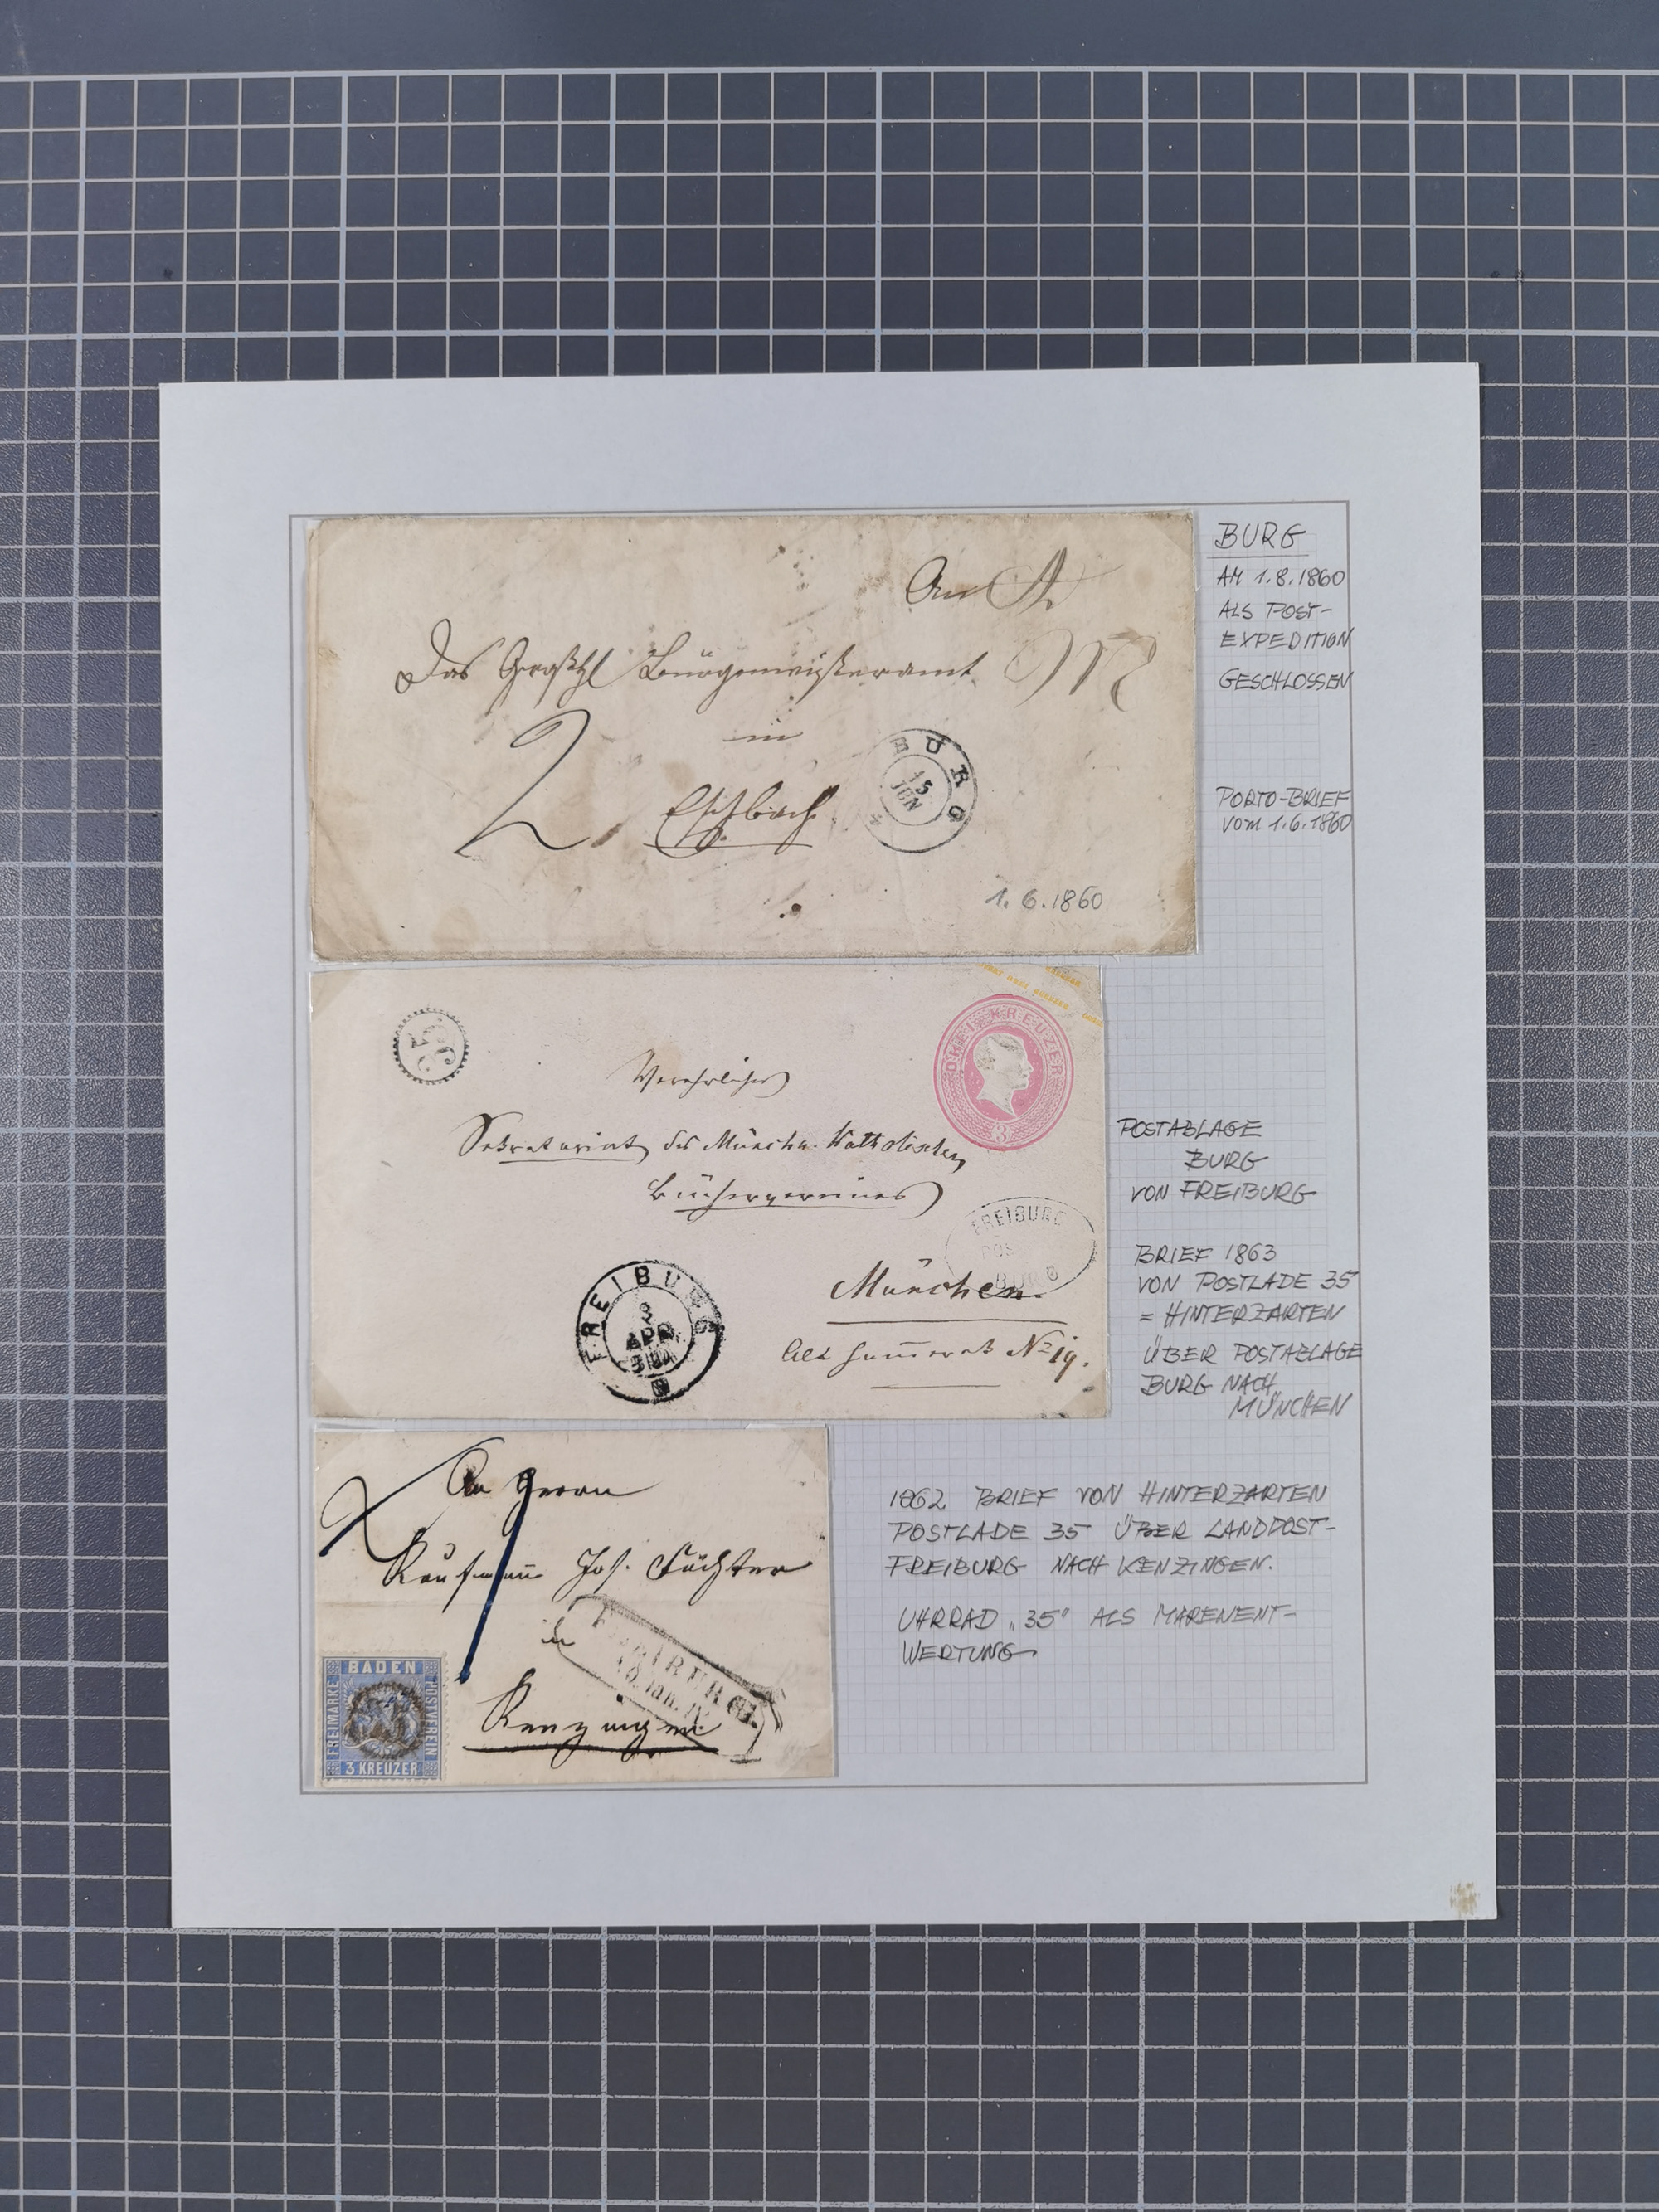 BURG
AM 1.8.1860
ALS POST-
EXPEDITION
GESCHLOSSEN
An
Das Großhl Bürgermeisteramt
in
2
Eschbach
BURG
15
JUN
1.6.1860
PORTO-BRIEF
VOM 1.6.1860
35
DREI KREUZER
3
Verehrliches
Sekretariat des Münchn. Katholischen
Büchervereines
FREIBURG
POS
BURG
München
FREIBURG
3
APR
No 19.
POSTABLAGE
BURG
VON FREIBURG
BRIEF 1863
VON POSTLADE 35
= HINTERZARTEN
ÜBER POSTABLAGE
BURG NACH
MÜNCHEN
An Herrn
Kaufmann Jos.
in
FREIBURG.
10. Jan.
Kenzingen
BADEN
FREIMARKE
POSTVEREIN
3 KREUZER
1862 BRIEF VON HINTERZARTEN
POSTLADE 35 ÜBER LANDPOST-
FREIBURG NACH KENZINGEN.
UHRRAD „35" ALS MARKENENT-
WERTUNG